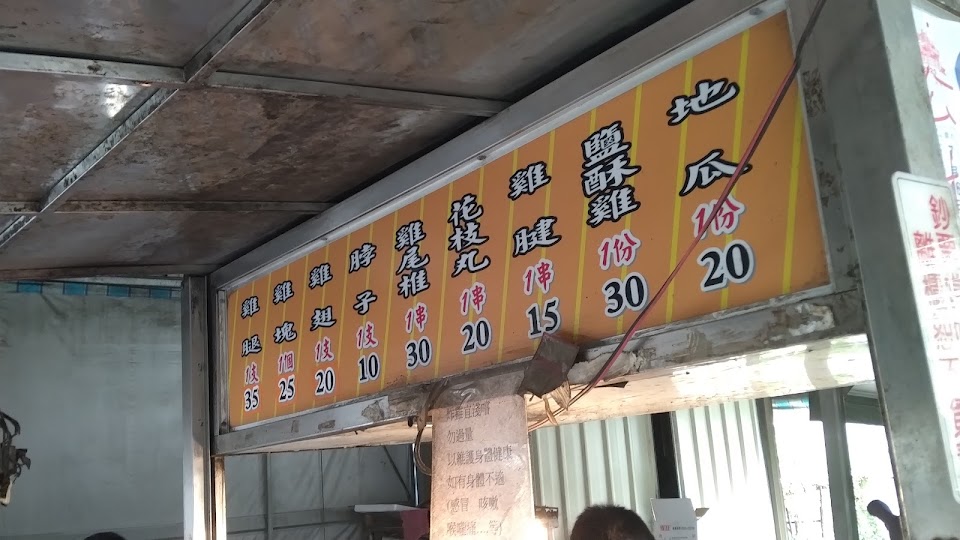 地瓜 1份 20
鹽酥雞 1份 30
雞腱 1串 15
花枝丸 1串 20
雞尾椎 1串 30
脖子 1支 10
雞翅 1支 20
雞塊 1個 25
雞腿 1支 35
勿過量
以維護身體健康
如有身體不適
(感冒 咳嗽
喉嚨痛...等)